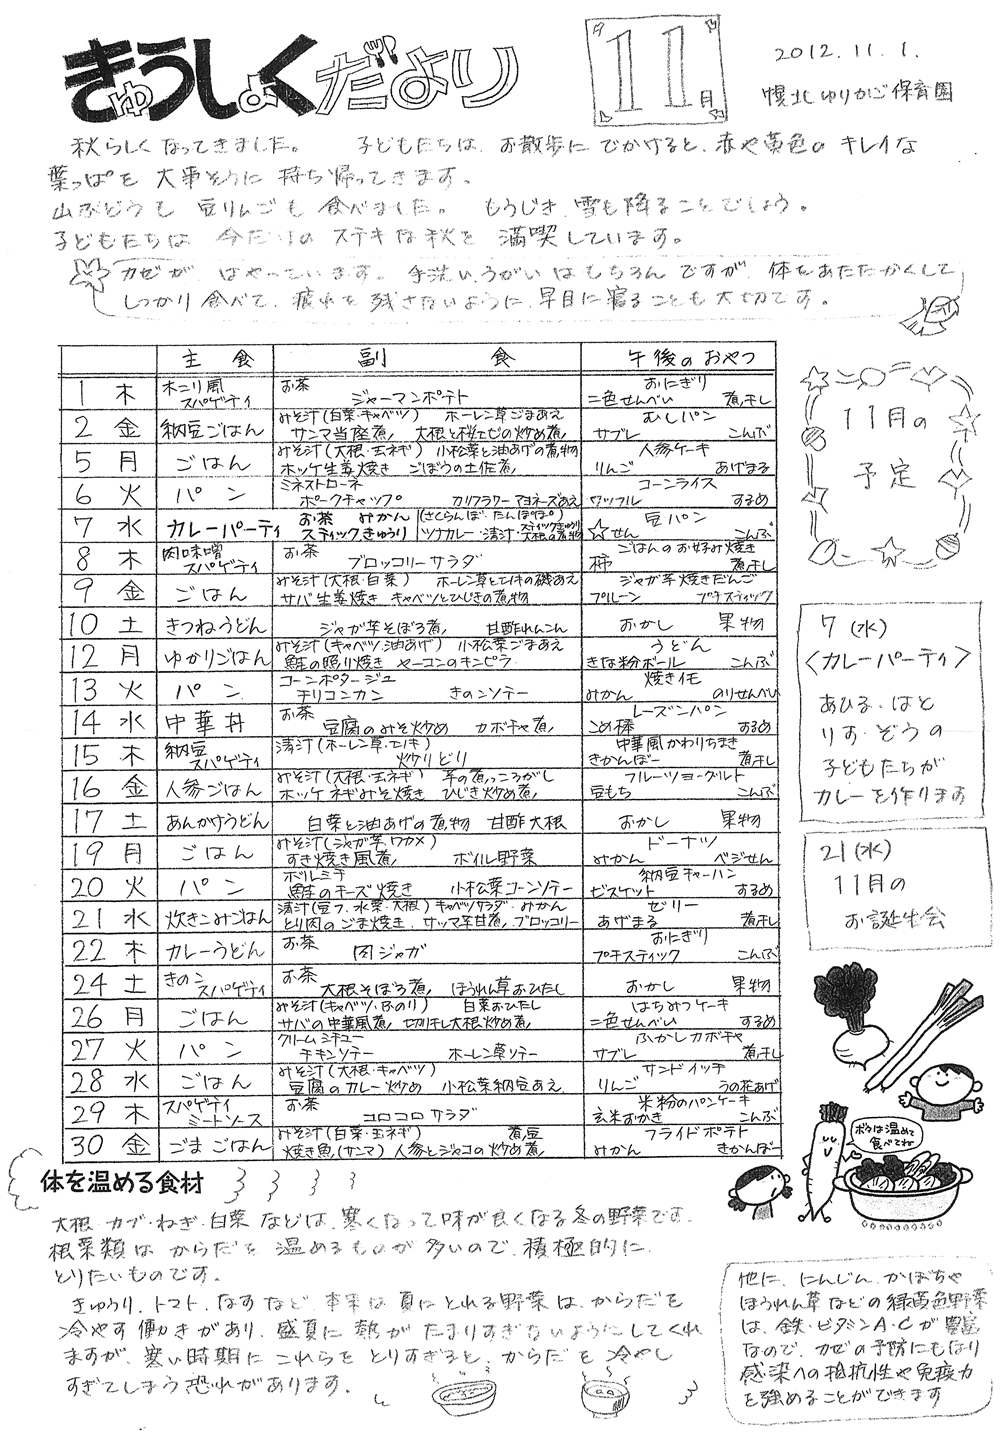 きゅうしょくだより
11月
2012.11.1.
幌北ゆりかご保育園
秋らしくなってきました。 子どもたちは、お散歩にでかけると、赤や黄色のキレイな
葉っぱを大事そうに持ち帰ってきます。
山ぶどうも豆りんごも食べました。 もうじき、雪も降ることでしょう。
子どもたちは今だけのステキな秋を満喫しています。
カゼが、はやっています。手洗い、うがいはもちろんですが、体をあたたかくして
しっかり食べて、疲れを残さないように、早目に寝ることも大切です。
主食 副食 午後のおやつ
1 木 木こり風スパゲティ お茶 ジャーマンポテト おにぎり 二色せんべい 煮干し
2 金 納豆ごはん みそ汁(白菜・キャベツ) ホーレン草ごまあえ サンマ当座煮 大根と桜エビの炒め煮 むしパン サブレ こんぶ
5 月 ごはん みそ汁(大根・玉ネギ) 小松菜と油あげの煮物 ホッケ生姜焼き ごぼうの土佐煮 人参ケーキ りんご あげまる
6 火 パン ミネストローネ ポークチャップ カリフラワーマヨネーズあえ コーンライス ワッフル するめ
7 水 カレーパーティ お茶 みかん スティックきゅうり (さくらんぼ・たんぽぽ) ツナカレー・清汁・スティックきゅうり 大根の煮物 豆パン ☆せん こんぶ
8 木 肉味噌スパゲティ お茶 ブロッコリーサラダ ごはんのお好み焼き 柿 煮干し
9 金 ごはん みそ汁(大根・白菜) ホーレン草とエノキの磯あえ サバ生姜焼き キャベツとひじきの煮物 ジャガ芋焼きだんご プルーン プチスティック
10 土 きつねうどん ジャガ芋そぼろ煮 甘酢れんこん おかし 果物
12 月 ゆかりごはん みそ汁(キャベツ・油あげ) 小松菜ごまあえ 鮭の照り焼き ヤーコンのキンピラ うどん きな粉ボール こんぶ
13 火 パン コーンポタージュ チリコンカン きのこソテー 焼きイモ みかん のりせんべい
14 水 中華丼 お茶 豆腐のみそ炒め カボチャ煮 レーズンパン こめ棒 するめ
15 木 納豆スパゲティ 清汁(ホーレン草・エノキ) 炒りどり 中華風かわりちまき きかんぼー 煮干し
16 金 人参ごはん みそ汁(大根・玉ネギ) 芋の煮っころがし ホッケネギみそ焼き ひじき炒め煮 フルーツヨーグルト 豆もち こんぶ
17 土 あんかけうどん 白菜と油あげの煮物 甘酢大根 おかし 果物
19 月 ごはん みそ汁(ジャガ芋・ワカメ) すき焼き風煮 ボイル野菜 ドーナツ みかん ベジせん
20 火 パン ボルシチ 鮭のチーズ焼き 小松菜コーンソテー 納豆チャーハン ビスケット するめ
21 水 炊きこみごはん 清汁(豆フ・水菜・大根) キャベツサラダ・みかん とり肉のごま焼き・サツマ芋甘煮・ブロッコリー ゼリー あげまる 煮干し
22 木 カレーうどん お茶 肉ジャガ おにぎり プチスティック こんぶ
24 土 きのこスパゲティ お茶 大根そぼろ煮 ほうれん草おひたし おかし 果物
26 月 ごはん みそ汁(キャベツ・ふのり) 白菜おひたし サバの中華風煮 切り干し大根炒め煮 はちみつケーキ 二色せんべい するめ
27 火 パン クリームシチュー チキンソテー ホーレン草ソテー ふかしカボチャ サブレ 煮干し
28 水 ごはん みそ汁(大根・キャベツ) 豆腐のカレー炒め 小松菜納豆あえ サンドイッチ りんご うの花あげ
29 木 スパゲティミートソース お茶 コロコロサラダ 米粉のパンケーキ 玄米おかき こんぶ
30 金 ごまごはん みそ汁(白菜・玉ネギ) 煮豆 焼き魚(サンマ) 人参とジャコの炒め煮 フライドポテト みかん きかんぼー
11月の
予定
7(水)
〈カレーパーティ〉
あひる・はと
りす・ぞうの
子どもたちが
カレーを作ります
21(水)
11月の
お誕生会
ボクは温めて
食べてね
体を温める食材
大根・カブ・ねぎ・白菜などは、寒くなって味が良くなる冬の野菜です。
根菜類はからだを温めるものが多いので、積極的に
とりたいものです。
きゅうり、トマト、なすなど、本来は夏にとれる野菜は、からだを
冷やす働きがあり、盛夏に熱がたまりすぎないようにしてくれ
ますが、寒い時期にこれらをとりすぎると、からだを冷やし
すぎてしまう恐れがあります。
他に、にんじん、かぼちゃ
ほうれん草などの緑黄色野菜
は、鉄・ビタミンA・Cが豊富
なので、カゼの予防にもなり
感染への抵抗性や免疫力
を強めることができます